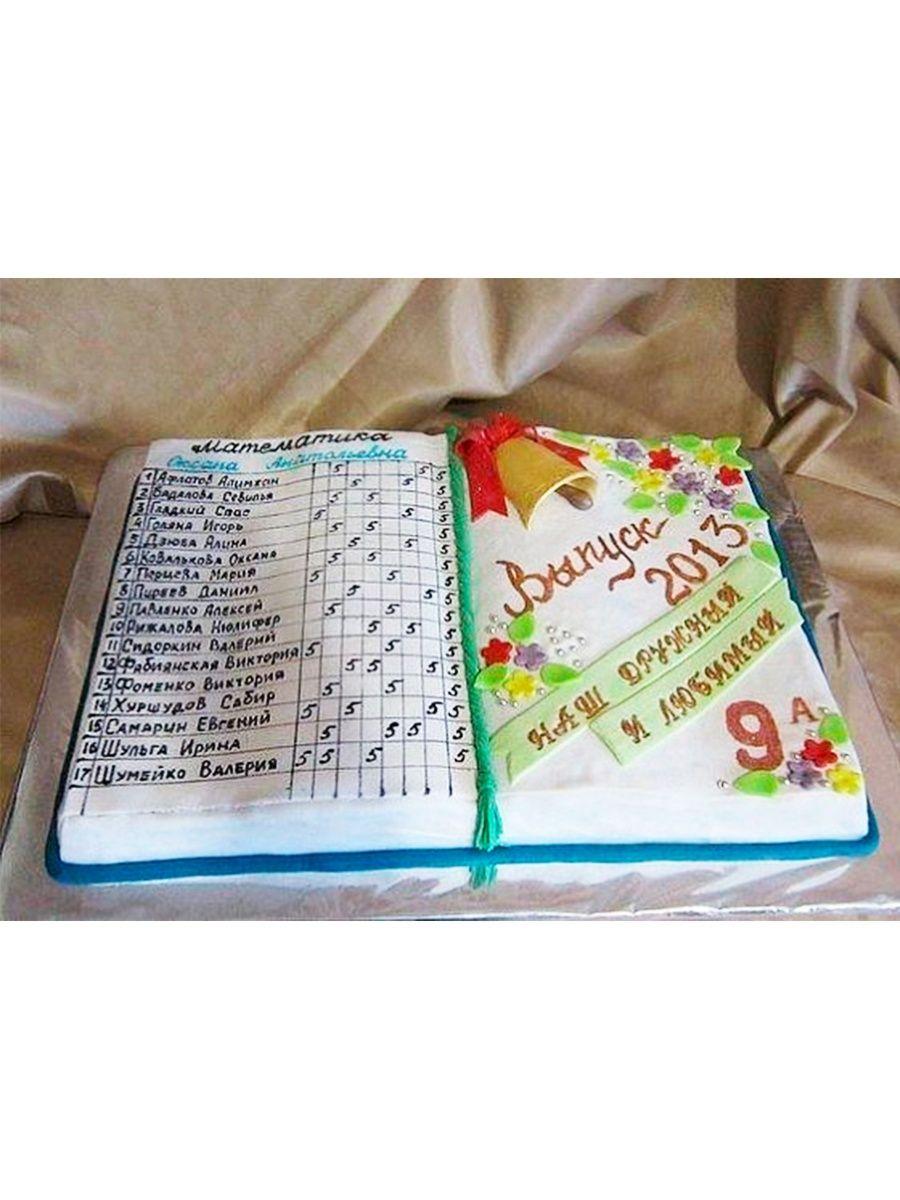 Математика
Оксана Анатольевна
1 Афлатов Алимхан 5 5 5 5
2 Бадалова Севилья 5 5
3 Гладкий Спас 5 5 5
4 Голяна Игорь 5 5 5
5 Дзюва Алина 5 5 5
6 Ковалькова Оксана 5 5 5
7 Перцева Мария 5 5 5
8 Пиреев Даниил 5 5 5
9 Павленко Алексей 5 5 5
10 Рижалова Нюлифер 5 5 5
11 Сидоркин Валерий 5 5 5
12 Фабиянская Виктория 5 5 5
13 Фоменко Виктория 5 5 5
14 Хуршудов Сабир 5 5 5 5
15 Самарин Евгений 5 5 5 5
16 Шульга Ирина 5 5 5 5
17 Шумейко Валерия 5 5 5 5
Выпуск
2013
НАШ ДРУЖНЫЙ
И ЛЮБИМЫЙ
9 А